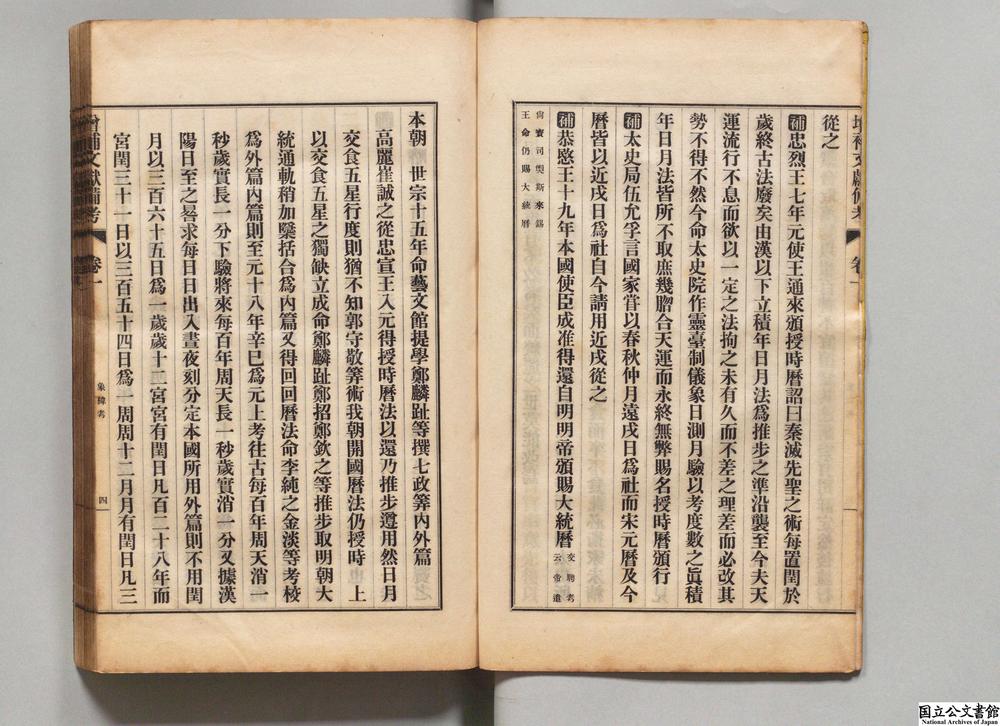 增補文獻備考 卷一
從之
補忠烈王七年元使王通來頒授時曆詔曰秦滅先聖之術每置閏於
歲終古法廢矣由漢以下立積年日月法爲推步之準沿襲至今夫天
運流行不息而欲以一定之法拘之未有久而不差之理差而必改其
勢不得不然今命太史院作靈臺制儀象日測月驗以考度數之眞積
年日月法皆所不取庶幾脗合天運而永終無弊賜名授時曆頒行
補太史局伍允孚言國家甞以春秋仲月遠戌日爲社而宋元曆及今
曆皆以近戌日爲社自今請用近戌從之
補恭愍王十九年本國使臣成准得還自明明帝頒賜大統曆
交聘考
云帝遣
尙寶司偰斯來錫
王命仍賜大統曆
本朝 世宗十五年命藝文館提學鄭麟趾等撰七政筭內外篇
高麗崔誠之從忠宣王入元得授時曆法以還乃推步遵用然日月
交食五星行度則猶不知郭守敬筭術我朝開國曆法仍授時 上
以交食五星之獨缺立成命鄭麟趾鄭招鄭欽之等推步取明朝大
統通軌稍加櫽括合爲內篇又得回回曆法命李純之金淡等考校
爲外篇內篇則至元十八年辛巳爲元上考往古每百年周天消一
秒歲實長一分下驗將來每百年周天長一秒歲實消一分又據漢
陽日至之晷求每日日出入晝夜刻分定本國所用外篇則不用閏
月以三百六十五日爲一歲歲十二宮宮有閏日凡百二十八年而
宮閏三十一日以三百五十四日爲一周周十二月月有閏日凡三
增補文獻備考 卷一
象緯考
四
国立公文書館
National Archives of Japan